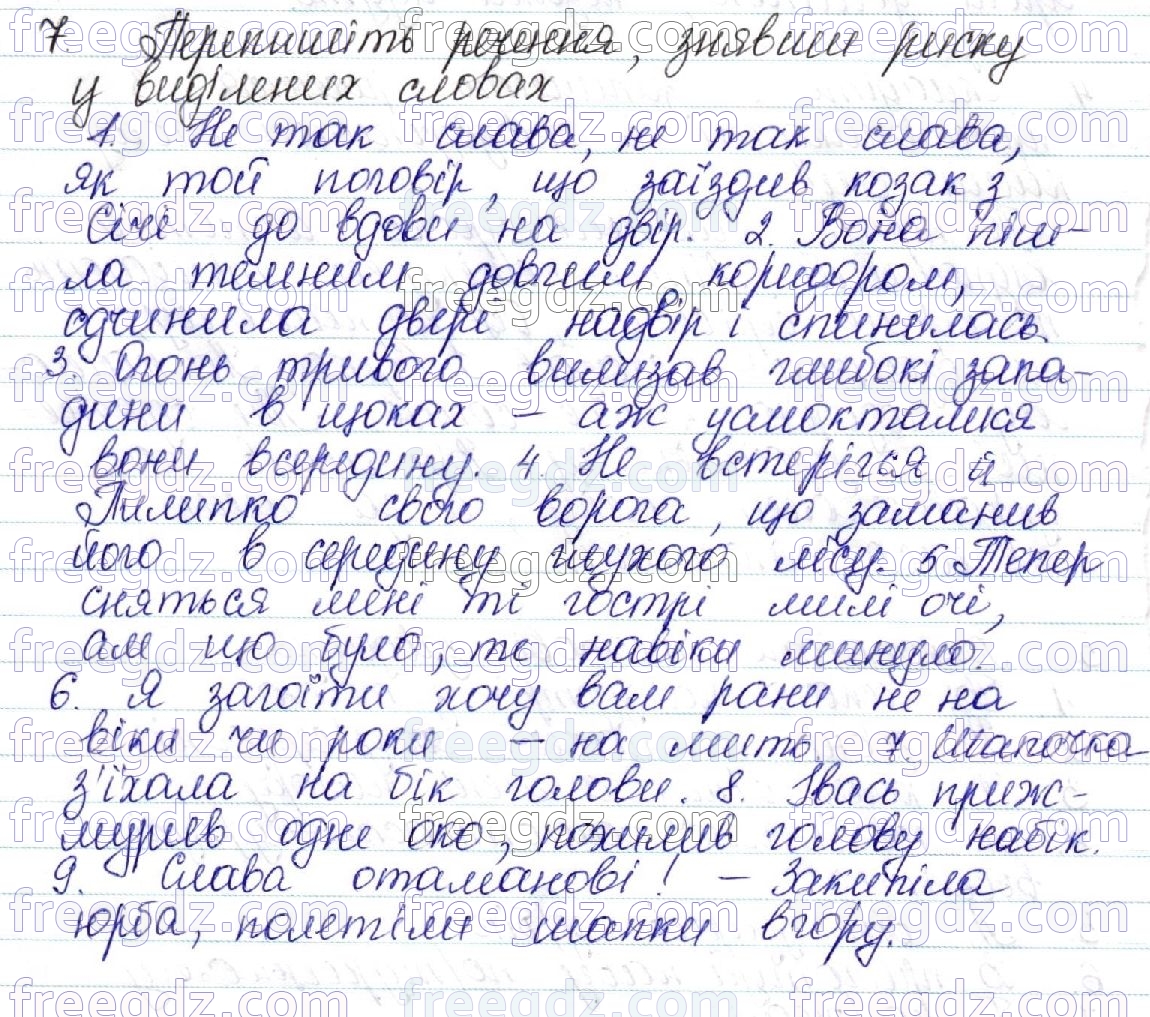 7. Перепишіть речення, знявши риску
у виділених словах
1. Не так слава, не так слава,
як той поговір, що заїздив козак з
Січі до вдови на двір. 2. Вона піш-
ла темним довгим коридором,
одчинила двері надвір і спинилась.
3. Огонь тривого вилизав глибокі запа-
дини в щоках – аж усмокталися
вони всередину. 4. Не встерігся й
Пилипко свого ворога, що заманив
його в середину глухого лісу. 5. Тепер
сняться мені ті гострі милі очі,
ал що було, те навіки минуло.
6. Я загоїти хочу вам рани не на
віки чи роки – на мить. 7. Шапочка
з'їхала на бік голови. 8. Івась приж-
мурив одне око, похилив голову набік.
9. Слава отаманові! – Закипіла
юрба, полетіли шапки вгору.